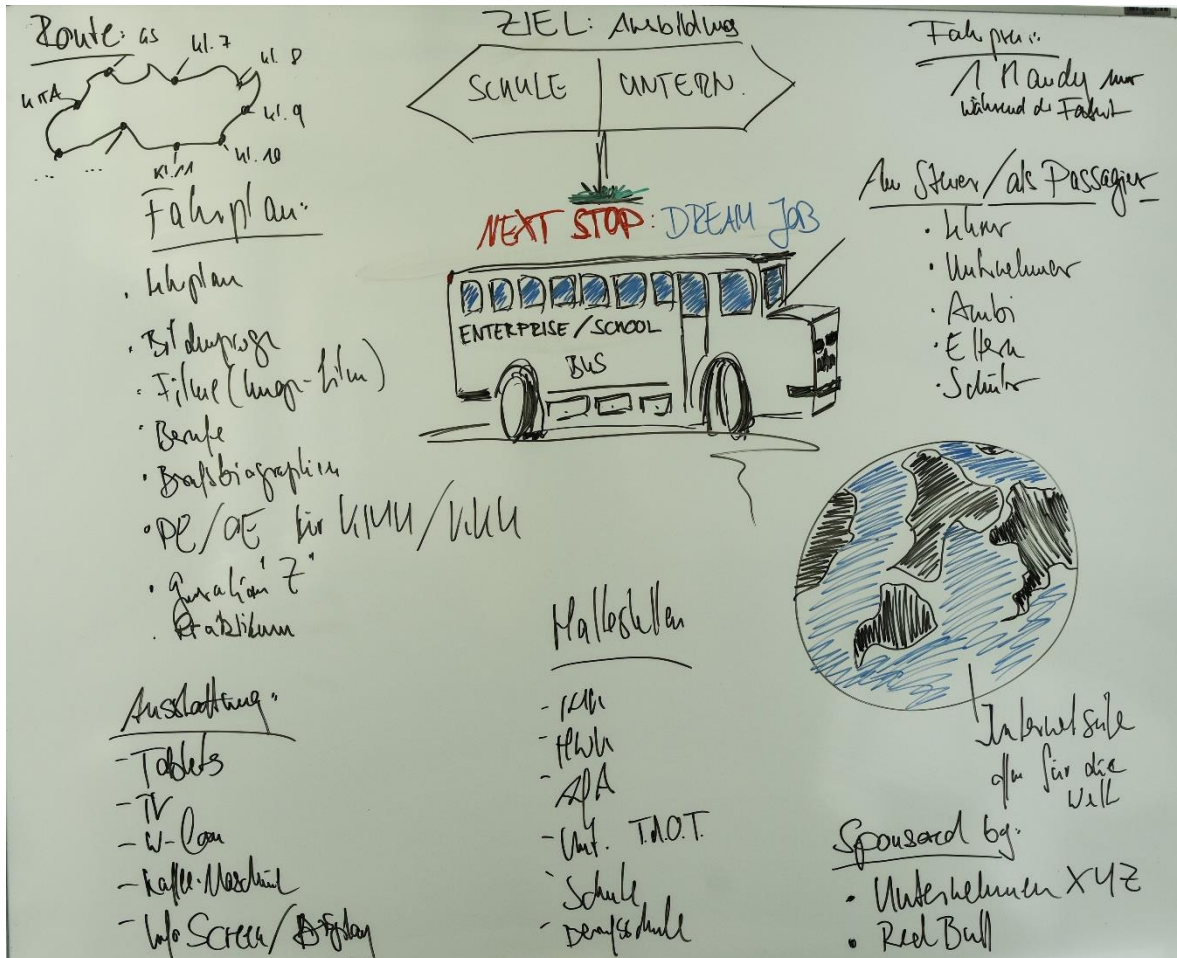 Route: GS
Kl. 7
Kl. 8
KITA
Kl. 9
Kl. 10
Kl. 11
... ...
Fahrplan:
· Lehrplan
· Bildungsprogr
· Filme (Image-Film)
· Berufe
· Berufsbiographien
· PE/OE für KMU/
· Generation "Z"
· Praktikum
Ausstattung:
- Tablets
- TV
- W-Lan
- Kaffee-Maschine
- Info Screen/Display
ZIEL: Ausbildung
SCHULE UNTERN.
NEXT STOP: DREAM JOB
ENTERPRISE/SCHOOL
BUS
Haltestellen
- IHK
- HWK
- AfA
- Unt. T.d.O.T.
- Schule
- Berufsschule
Fahrpreis:
1 Handy nur
während der Fahrt
Am Steuer/als Passagier
· Lehrer
· Unternehmer
· Azubi
· Eltern
· Schüler
Internetseite
offen für die
Welt
Sponsored by:
· Unternehmen XYZ
· Red Bull